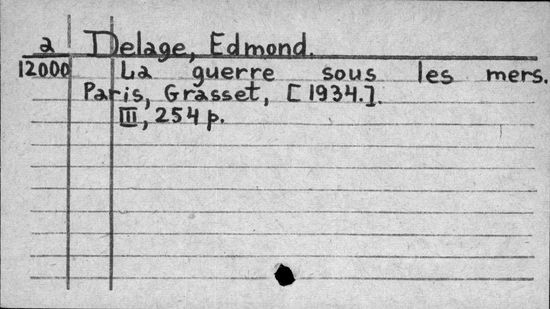 a Delage, Edmond.
12000 La guerre sous les mers.
Paris, Grasset, [1934.].
III, 254 p.